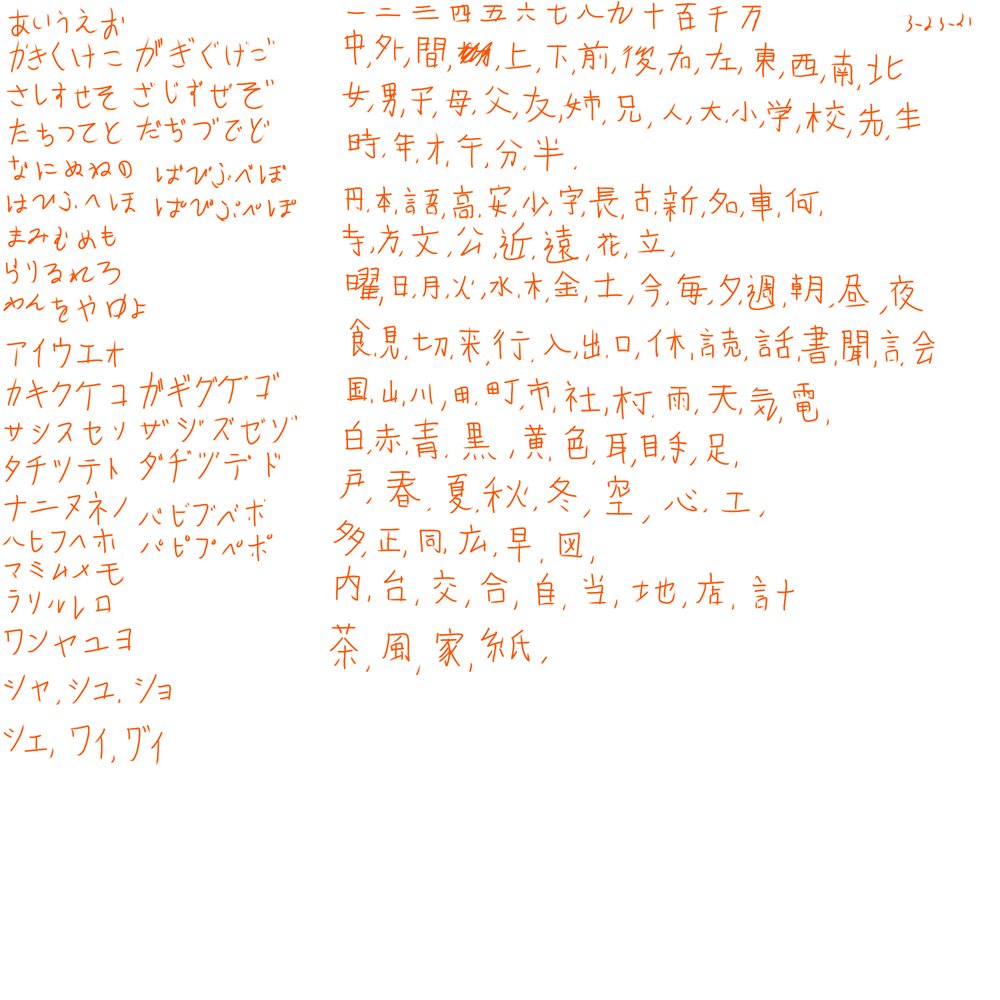 あいうえお
かきくけこ がぎぐげご
さしすせそ ざじずぜぞ
たちつてと だぢづでど
なにぬねの ばびぶべぼ
はひふへほ ぱぴぷぺぽ
まみむめも
らりるれろ
わんをやゆよ
アイウエオ
カキクケコ ガギグゲゴ
サシスセソ ザジズゼゾ
タチツテト ダヂヅデド
ナニヌネノ バビブベボ
ハヒフヘホ パピプペポ
マミムメモ
ラリルレロ
ワンヤユヨ
シャ,シュ,ショ
シェ,ワィ,グィ
一二三四五六七八九十百千万
3-23-21
中,外,間,上,下,前,後,右,左,東,西,南,北
女,男,子,母,父,友,姉,兄,人,大,小,学,校,先,生
時,年,才,午,分,半.
円,本,語,高,安,少,字,長,古,新,名,車,何,
寺,方,文,公,近,遠,花,立,
曜,日,月,火,水,木,金,土,今,毎,夕,週,朝,昼,夜
食,見,切,来,行,入,出,口,休,読,話,書,聞,言,会
国,山,川,田,町,市,社,村,雨,天,気,電,
白,赤,青,黒,黄,色,耳,目,手,足,
戸,春,夏,秋,冬,空,心,工,
多,正,同,広,早,図,
内,台,交,合,自,当,地,店,計
茶,風,家,紙,